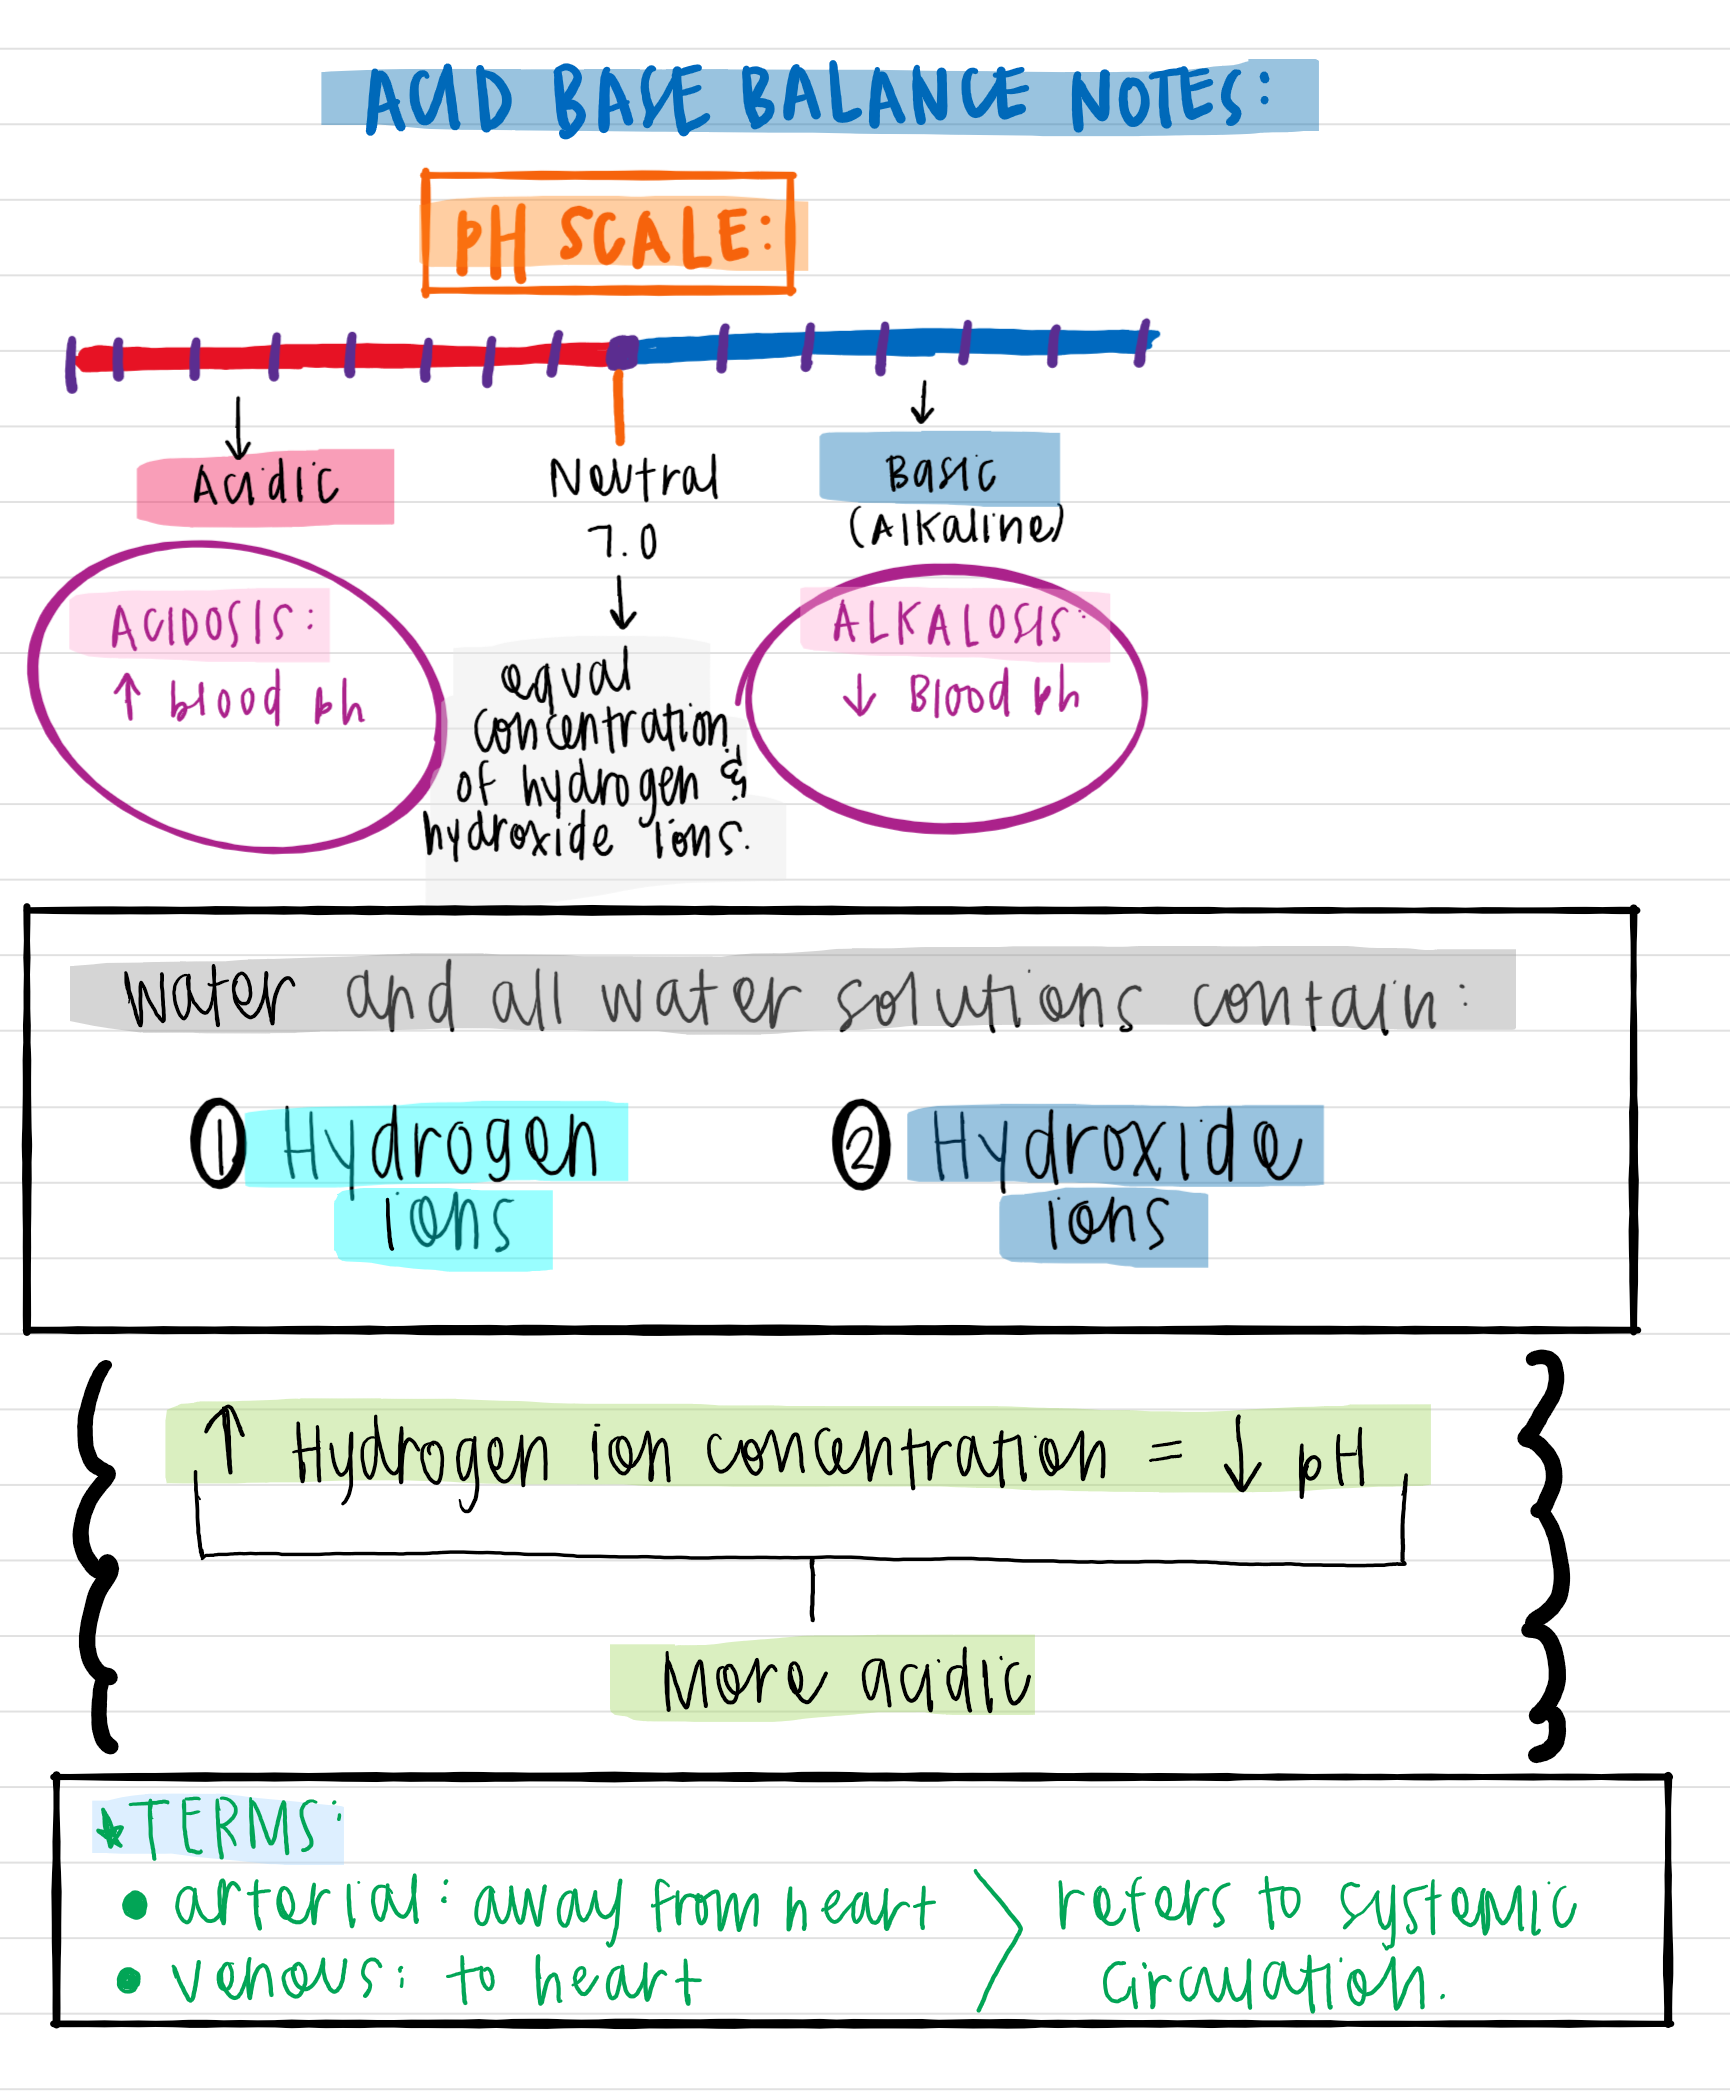 ACID BASE BALANCE NOTES:
pH SCALE:
Acidic
Neutral
7.0
Basic
(Alkaline)
ACIDOSIS:
↑ blood ph
equal
concentration
of hydrogen &
hydroxide ions.
ALKALOSIS:
↓ Blood ph
Water and all water solutions contain:
① Hydrogen
ions
② Hydroxide
ions
↑ Hydrogen ion concentration = ↓ pH
More acidic
★TERMS:
• arterial: away from heart
• venous: to heart
refers to systemic
circulation.